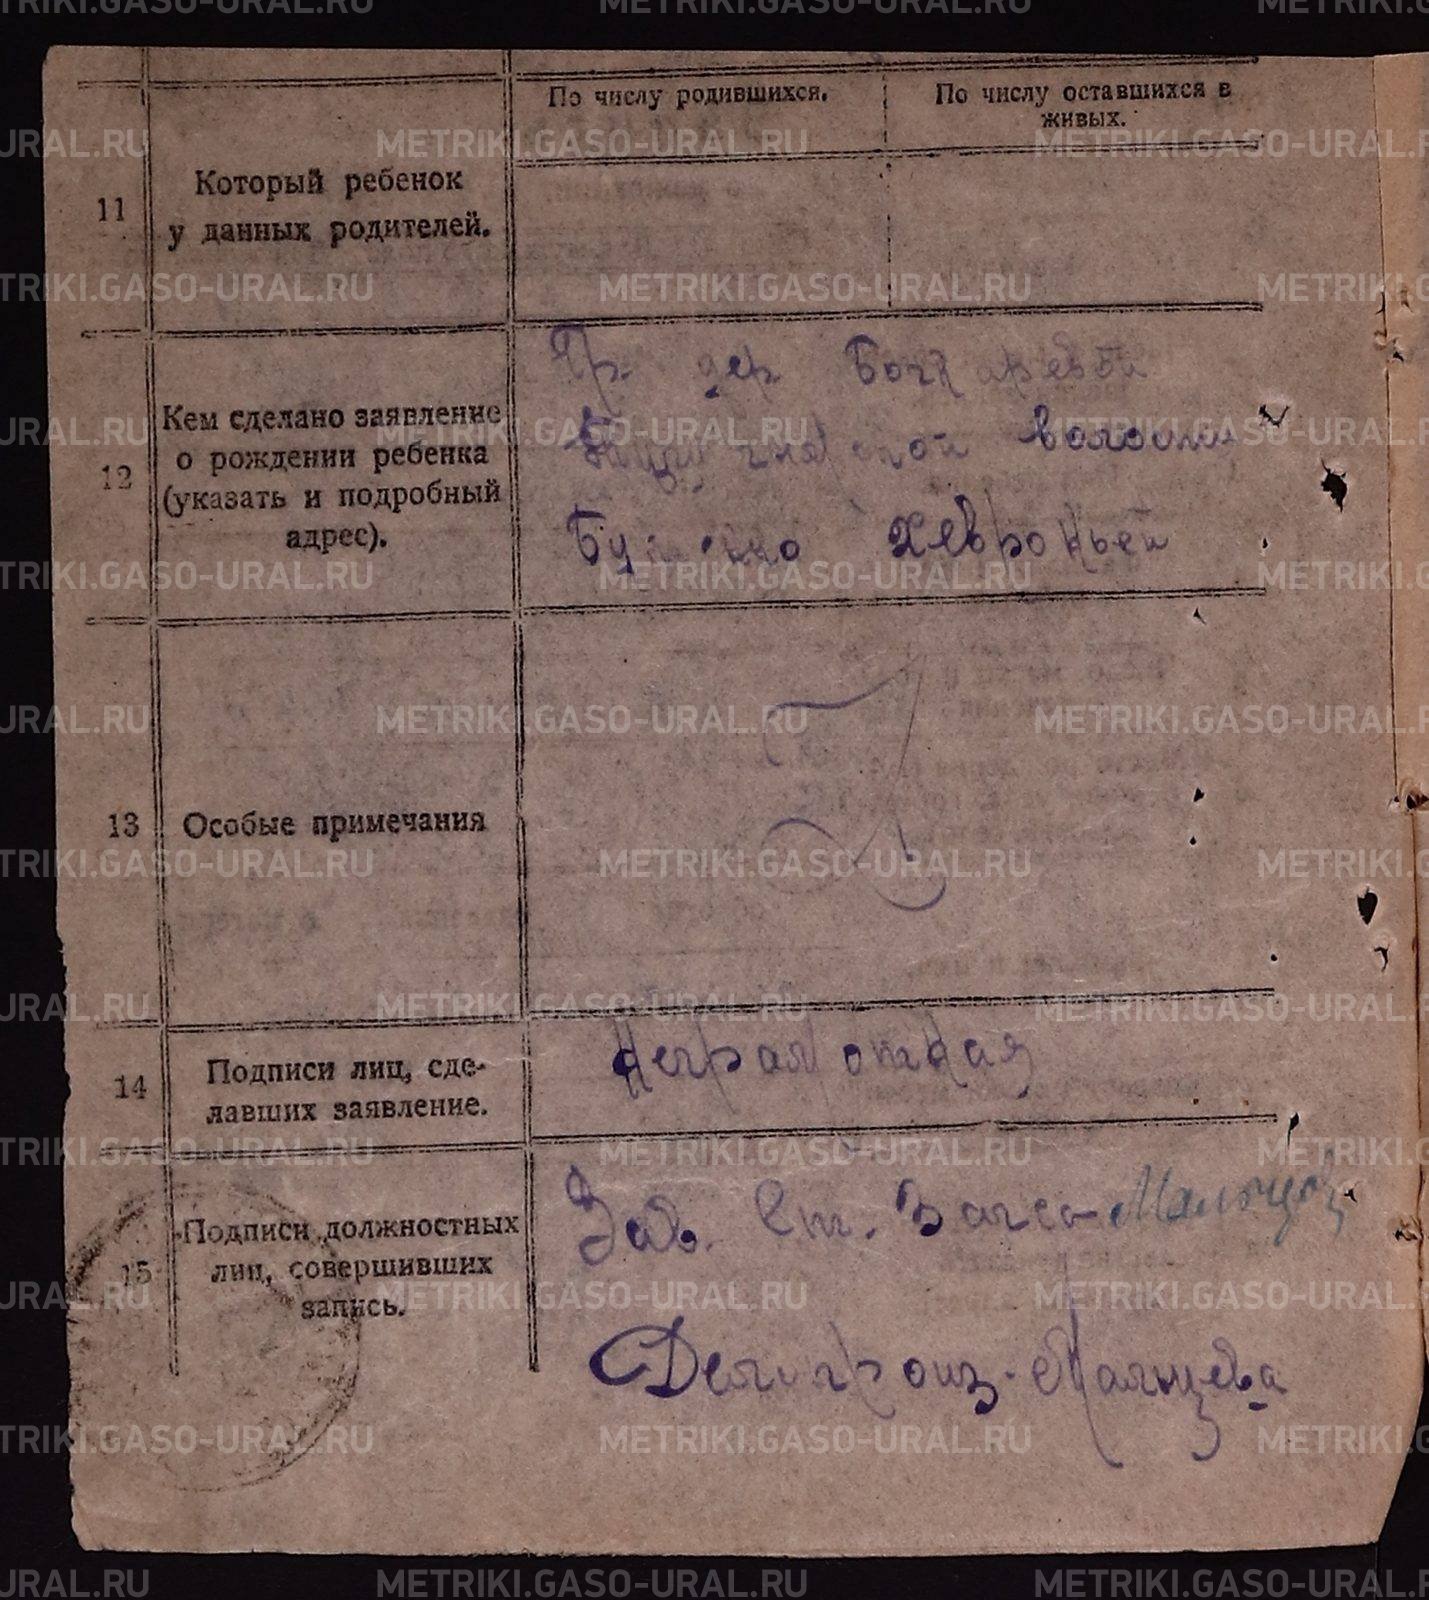 По числу родившихся.
По числу оставшихся в
живых.
11
Который ребенок
у данных родителей.
12
Кем сделано заявление
о рождении ребенка
(указать и подробный
адрес).
Гр. дер
волости
Хевроньей
13
Особые примечания
14
Подписи лиц, сде-
лавших заявление.
Неграмотная
15
Подписи должностных
лиц, совершивших
запись.
Зав. Ст. Загса Мальцев
Делопроиз. Мальцева
METRIKI.GASO-URAL.RU